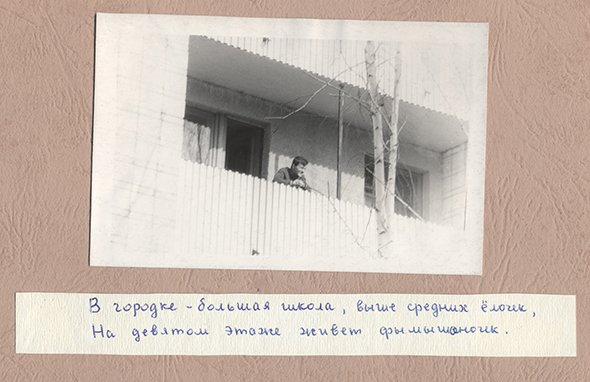 В городке - большая школа, выше средних ёлочк,
На девятом этаже живет фымышоночк.